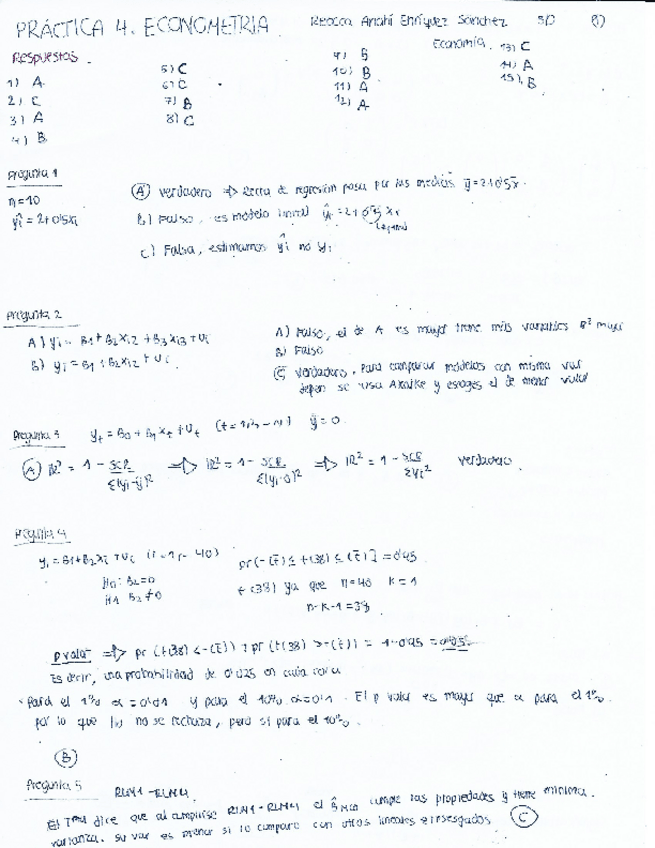 PRÁCTICA 4. ECONOMETRIA
Rebeca Anahí Enríquez Sánchez
Economía
Respuestas.
1) A
2) C
3) A
4) B
5) C
6) C
7) B
8) C
9) B
10) B
11) A
12) A
13) C
14) A
15) B
Pregunta 1
n=10
ŷi = 2+0'5xi
(A) Verdadero => Recta de regresión pasa por las medias ȳ=2+0'5x̄.
B) Falso, es modelo lineal
C) Falsa, estimamos ŷi no yi
Pregunta 2
A) yi = B1+B2xi2 + B3xi3 + Ui
B) yi = B1+B2xi2 + Ui
A) Falso, el de A es mayor tiene más variables R² mayor
B) Falso
(C) Verdadero, para comparar modelos con misma var
depen se usa Akaike y escoges el de menor valor
Pregunta 3 yt = B0 + B1xt + Ut ȳ=0
(A) R² = 1 - SCR/Σ(yi-ȳ)² => R² = 1 - SCR/Σ(yi-0)² => R² = 1 - SCR/Σyi² Verdadero
Pregunta 4
yi = B1+B2xi+Ui
H0: B2=0
H1 B2≠0
t(38) ya que n=40 k=1
n-k-1=38
p valor
Es decir, una probabilidad de 0'025 en cada cola
Para el 1% α=0'01 y para el 10% α=0'1. El p valor es mayor que α para el 1%.
por lo que H0 no se rechaza, pero sí para el 10%.
(B)
Pregunta 5 RLM1-RLM4
El dice que al cumplirse RLM1-RLM4 el B̂MCO cumple las propiedades y tiene mínima.
varianza. Su var es menor si lo comparo con otros lineales e insesgados (C)